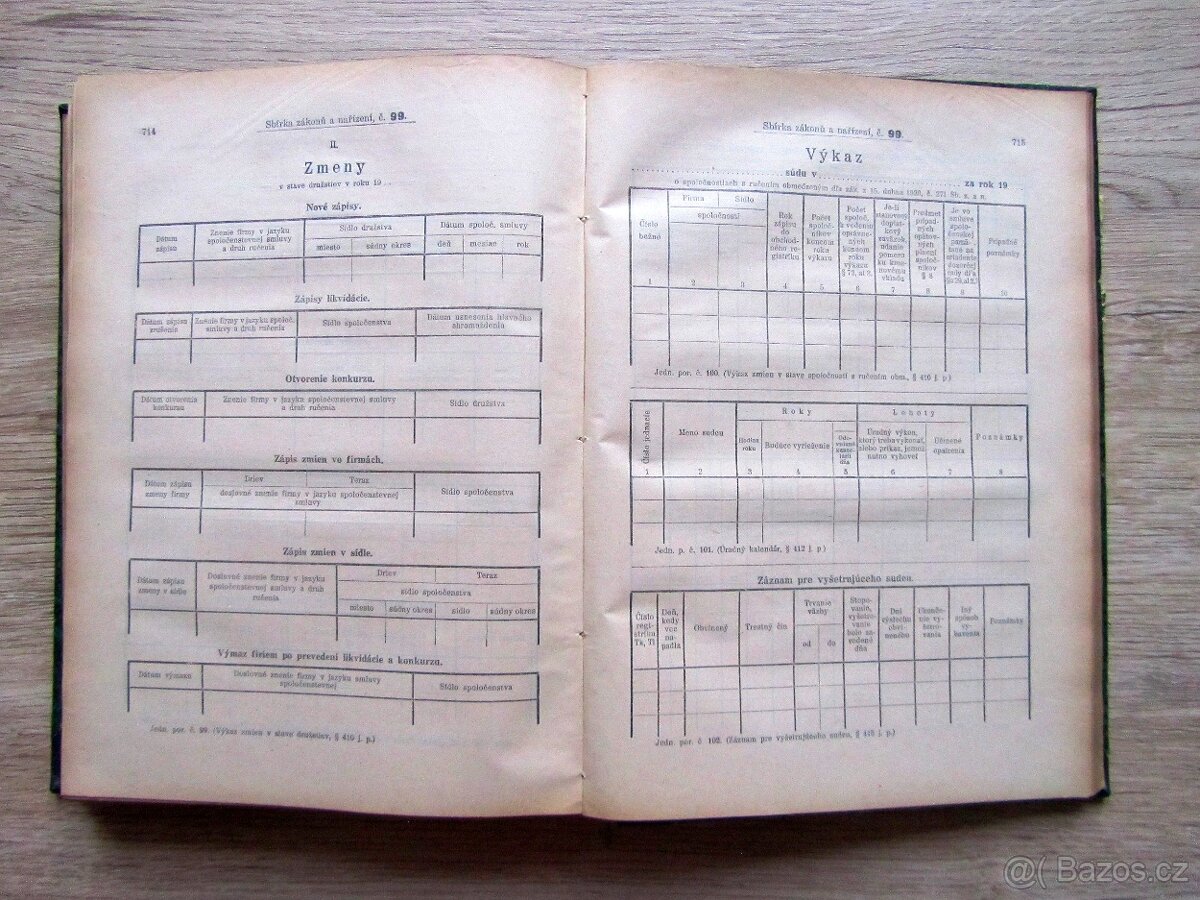 714
Sbírka zákonů a nařízení, č. 99.
II.
Zmeny
v stave družstiev v roku 19 . .
Nové zápisy.
Dátum zápisu
Znenie firmy v jazyku spoločenstevnej smluvy a druh ručenia
Sídlo družstva
miesto
súdny okres
Dátum společ. smluvy
deň
mesiac
rok
Zápisy likvidácie.
Dátum zápisu zrušenia
Znenie firmy v jazyku společ. smluvy a druh ručenia
Sídlo spoločenstva
Dátum uznesenia hlavného shromaždenia
Otvorenie konkurzu.
Dátum otvorenia konkurzu
Znenie firmy v jazyku spoločenstevnej smluvy a druh ručenia
Sídlo družstva
Zápis zmien vo firmách.
Dátum zápisu zmeny firmy
Driev
Teraz
doslovné znenie firmy v jazyku spoločenstevnej smluvy
Sídlo spoločenstva
Zápis zmien v sídle.
Dátum zápisu zmeny v sídle
Doslovné znenie firmy v jazyku spoločenstevnej smluvy a druh ručenia
Driev
Teraz
sídlo spoločenstva
miesto
súdny okres
sídlo
súdny okres
Výmaz firiem po prevedení likvidácie a konkurzu.
Dátum výmazu
Doslovné znenie firmy v jazyku smluvy spoločenstevnej
Sídlo spoločenstva
Jedn. por. č. 99. (Výkaz zmien v stave družstiev, § 410 j. p.)
Sbírka zákonů a nařízení, č. 99.
715
Výkaz
súdu v
za rok 19
o spoločnostiach s ručením obmedzeným dľa zák. z 15. dubna 1920, č. 271 Sb. z. a n.
Číslo bežné
Firma
Sídlo
spoločnosti
Rok zápisu do obchodného registríku
Počet spoločníkov koncom roku výkazu
Počet společ. k vedeniu oprávnených koncom roku výkazu § 72, al. 2.
Prípadné poznámky
1 2 3 4 5 6 7 8 9 10
Jedn. por. č. 100. (Výkaz zmien v stave spoločností s ručením obm., § 410 j. p.)
Číslo jednacie
Meno sudcu
Roky
Hodina roku
Budúce vyriešenie
Lehoty
Úradný výkon, ktorý treba vykonať, alebo príkaz, jemuž nutno vyhoveť
Účinené opatrenia
Poznámky
1 2 3 4 5 6 7 8
Jedn. p. č. 101. (Úradný kalendár, § 412 j. p.)
Záznam pre vyšetrujúceho sudcu.
Číslo registríka Tk, Tl
Deň, kedy vec napadla
Obvinený
Trestný čin
Trvanie väzby
od
do
Iný spôsob vybavenia
Poznámky
Jedn. por. č. 102. (Záznam pre vyšetrujúceho sudcu, § 413 j. p.)
@( Bazos.cz